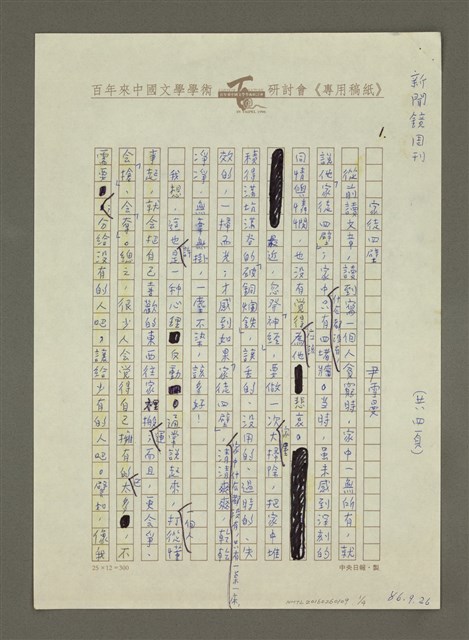 新聞鏡周刊
(共四頁)
百年來中國文學學術研討會《專用稿紙》
1.
家徒四壁
尹雪曼
從前讀文章,讀到寫一個人貧窮時,家中一無所有,就
說他「家徒四壁」;家中什麼都沒有,只有四堵牆。當時,雖未感到深刻的
同情與憐憫,也沒有覺得應該為他悲哀。
最近,忽發神經,要做一次大掃除,把家中堆
積得滿坑滿谷的破銅爛鐵,該丟的、沒用的、過時的、失
效的,一掃而光;才感到如果「家徒四壁」,清清爽爽、乾乾
淨淨,無牽無掛,一塵不染,該多好!
我想,這也許是一種心理反動。通常說起來,一個人打從懂
事起,就會把自己喜歡的東西往家裡搬運。而且,更會爭、
會搶、會奪。總之,很少人會覺得自己擁有的已太多,不
需要,分給沒有的人吧,讓給少有的人吧。譬如,像我
25×12=300
中央日報・製
86.9.26
1/4